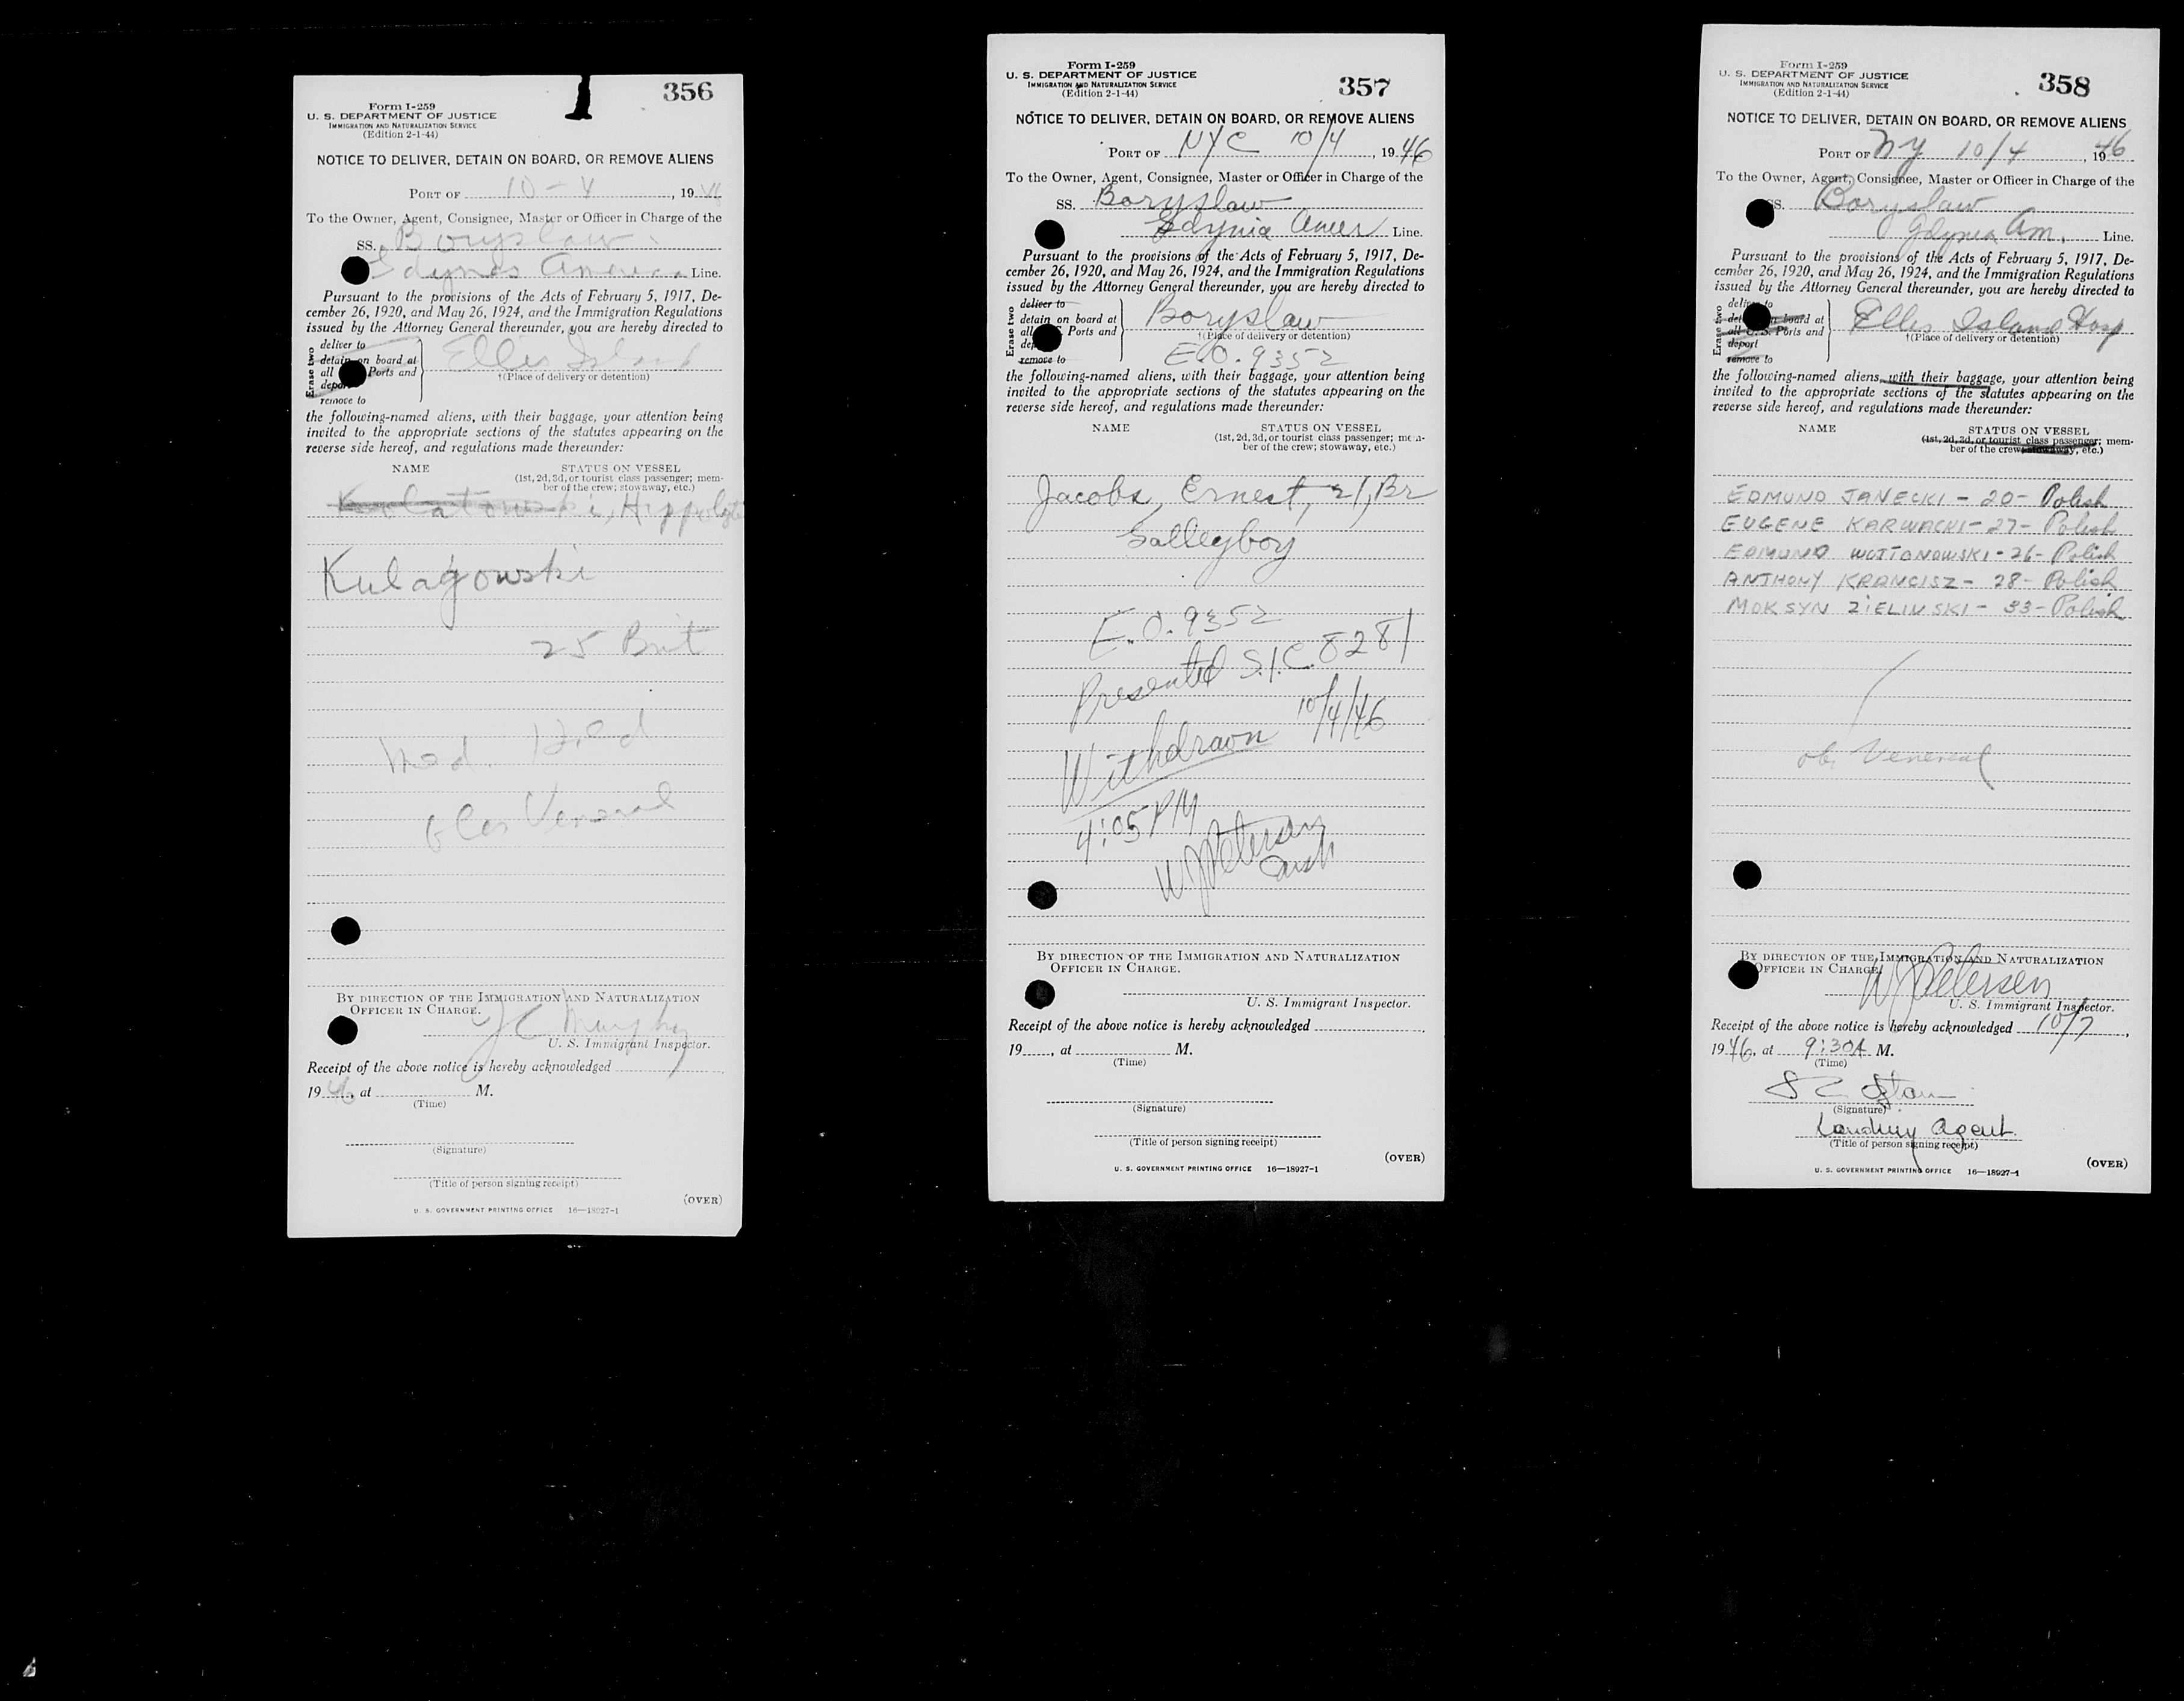 356
Form I-259
U. S. DEPARTMENT OF JUSTICE
IMMIGRATION AND NATURALIZATION SERVICE
(Edition 2-1-44)
NOTICE TO DELIVER, DETAIN ON BOARD, OR REMOVE ALIENS
PORT OF 10-4, 1946
To the Owner, Agent, Consignee, Master or Officer in Charge of the
SS. Boryslaw
America Line.
Pursuant to the provisions of the Acts of February 5, 1917, De-
cember 26, 1920, and May 26, 1924, and the Immigration Regulations
issued by the Attorney General thereunder, you are hereby directed to
Erase two
deliver to
detain on board at
all Ports and
depor
remove to
Ellis Island
†(Place of delivery or detention)
the following-named aliens, with their baggage, your attention being
invited to the appropriate sections of the statutes appearing on the
reverse side hereof, and regulations made thereunder:
NAME STATUS ON VESSEL
(1st, 2d, 3d, or tourist class passenger; mem-
ber of the crew; stowaway, etc.)
Hippolyte
Kulagowski
25 Brit
Med. Held
Venereal
BY DIRECTION OF THE IMMIGRATION AND NATURALIZATION
OFFICER IN CHARGE.
J C Murphy
U. S. Immigrant Inspector.
Receipt of the above notice is hereby acknowledged
1946, at M.
(Time)
(Signature)
(Title of person signing receipt)
(OVER)
U. S. GOVERNMENT PRINTING OFFICE 16—18927-1
357
Form I-259
U. S. DEPARTMENT OF JUSTICE
IMMIGRATION AND NATURALIZATION SERVICE
(Edition 2-1-44)
NOTICE TO DELIVER, DETAIN ON BOARD, OR REMOVE ALIENS
PORT OF NYC 10/4, 1946
To the Owner, Agent, Consignee, Master or Officer in Charge of the
SS. Boryslaw
Gdynia Amer Line.
Pursuant to the provisions of the Acts of February 5, 1917, De-
cember 26, 1920, and May 26, 1924, and the Immigration Regulations
issued by the Attorney General thereunder, you are hereby directed to
Erase two
deliver to
detain on board at
all Ports and
dep
remove to
Boryslaw
†(Place of delivery or detention)
E.O. 9352
the following-named aliens, with their baggage, your attention being
invited to the appropriate sections of the statutes appearing on the
reverse side hereof, and regulations made thereunder:
NAME STATUS ON VESSEL
(1st, 2d, 3d, or tourist class passenger; mem-
ber of the crew; stowaway, etc.)
Jacobs, Ernest, 21, Br
Galleyboy
E.O. 9352
Presented S.I.C. 8281
10/4/46
Withdrawn
4:05 PM
W J Petersen
BY DIRECTION OF THE IMMIGRATION AND NATURALIZATION
OFFICER IN CHARGE.
U. S. Immigrant Inspector.
Receipt of the above notice is hereby acknowledged
19, at M.
(Time)
(Signature)
(Title of person signing receipt)
(OVER)
U. S. GOVERNMENT PRINTING OFFICE 16—18927-1
358
Form I-259
U. S. DEPARTMENT OF JUSTICE
IMMIGRATION AND NATURALIZATION SERVICE
(Edition 2-1-44)
NOTICE TO DELIVER, DETAIN ON BOARD, OR REMOVE ALIENS
PORT OF NY 10/4, 1946
To the Owner, Agent, Consignee, Master or Officer in Charge of the
SS. Boryslaw
Gdynia Am. Line.
Pursuant to the provisions of the Acts of February 5, 1917, De-
cember 26, 1920, and May 26, 1924, and the Immigration Regulations
issued by the Attorney General thereunder, you are hereby directed to
Erase two
deliver to
det on board at
all U. S. Ports and
deport
remove to
Ellis Island Hosp
†(Place of delivery or detention)
the following-named aliens, with their baggage, your attention being
invited to the appropriate sections of the statutes appearing on the
reverse side hereof, and regulations made thereunder:
NAME STATUS ON VESSEL
(1st, 2d, 3d, or tourist class passenger; mem-
ber of the crew; stowaway, etc.)
EDMUND JANECKI - 20 - Polish
EUGENE KARWACKI - 27 - Polish
EDMUND WOJTONOWSKI - 26 - Polish
ANTHONY KRANCISZ - 28 - Polish
MOKSYN ZIELINSKI - 33 - Polish
ob. Venereal
BY DIRECTION OF THE IMMIGRATION AND NATURALIZATION
OFFICER IN CHARGE.
W J Petersen
U. S. Immigrant Inspector.
Receipt of the above notice is hereby acknowledged 10/7,
1946, at 9:30A M.
(Time)
(Signature)
Landing Agent
(Title of person signing receipt)
(OVER)
U. S. GOVERNMENT PRINTING OFFICE 16—18927-1